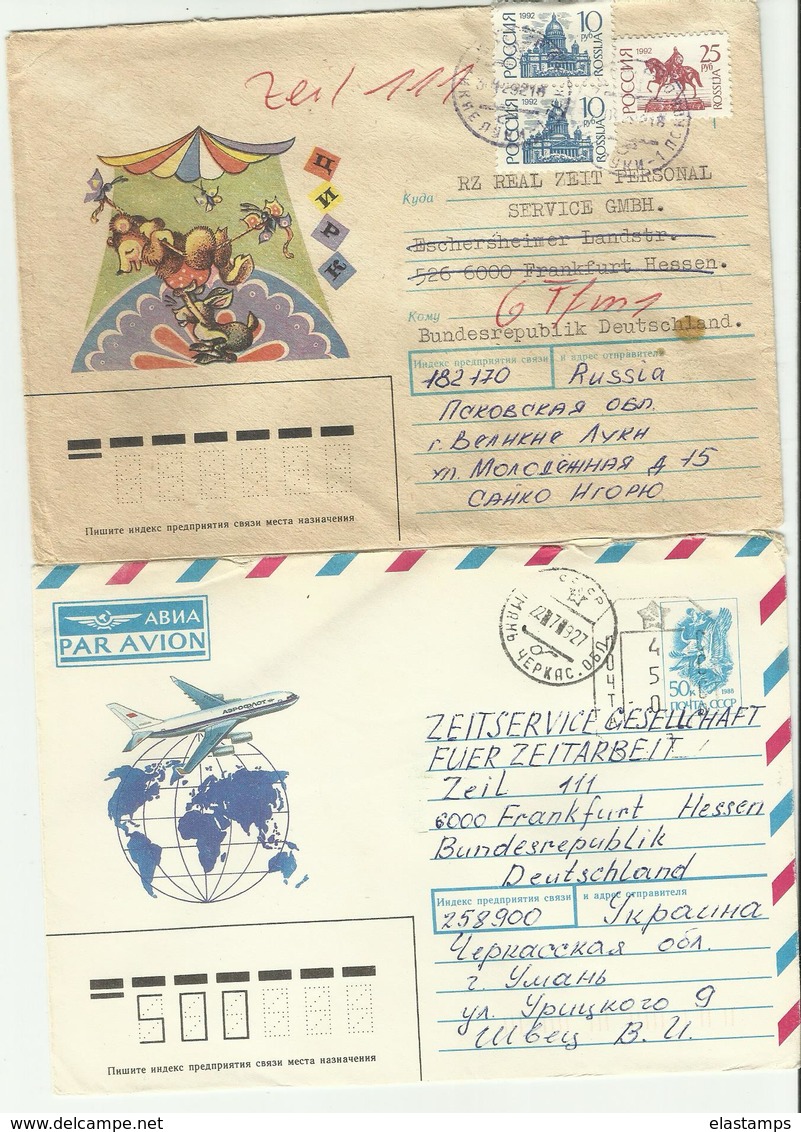 РОССИЯ 1992 10 руб ROSSIJA
РОССИЯ 1992 25 руб ROSSIJA
РОССИЯ 1992 10 руб ROSSIJA
Zeil 111
ЦИРК
Куда
RZ REAL ZEIT PERSONAL
SERVICE GMBH.
Eschersheimer Landstr.
526 6000 Frankfurt Hessen.
Кому
6 Ffm 1
Bundesrepublik Deutschland.
Индекс предприятия связи и адрес отправителя
182170 Russia
Псковская обл.
г. Великие Луки
ул. Молодёжная д 15
Сайко Игорю
Пишите индекс предприятия связи места назначения
АВИА
PAR AVION
АЭРОФЛОТ
СССР
УМАНЬ ЧЕРКАС. ОБЛ.
ПОЧТА
450
50к 1988
ПОЧТА СССР
ZEITSERVICE GESELLSCHAFT
FUER ZEITARBEIT
Zeil 111
6000 Frankfurt Hessen
Bundesrepublik
Deutschland
Индекс предприятия связи и адрес отправителя
258900 Украина
Черкасская обл.
г. Умань
ул. Урицкого 9
Швец В. И.
500
Пишите индекс предприятия связи места назначения
elastamps